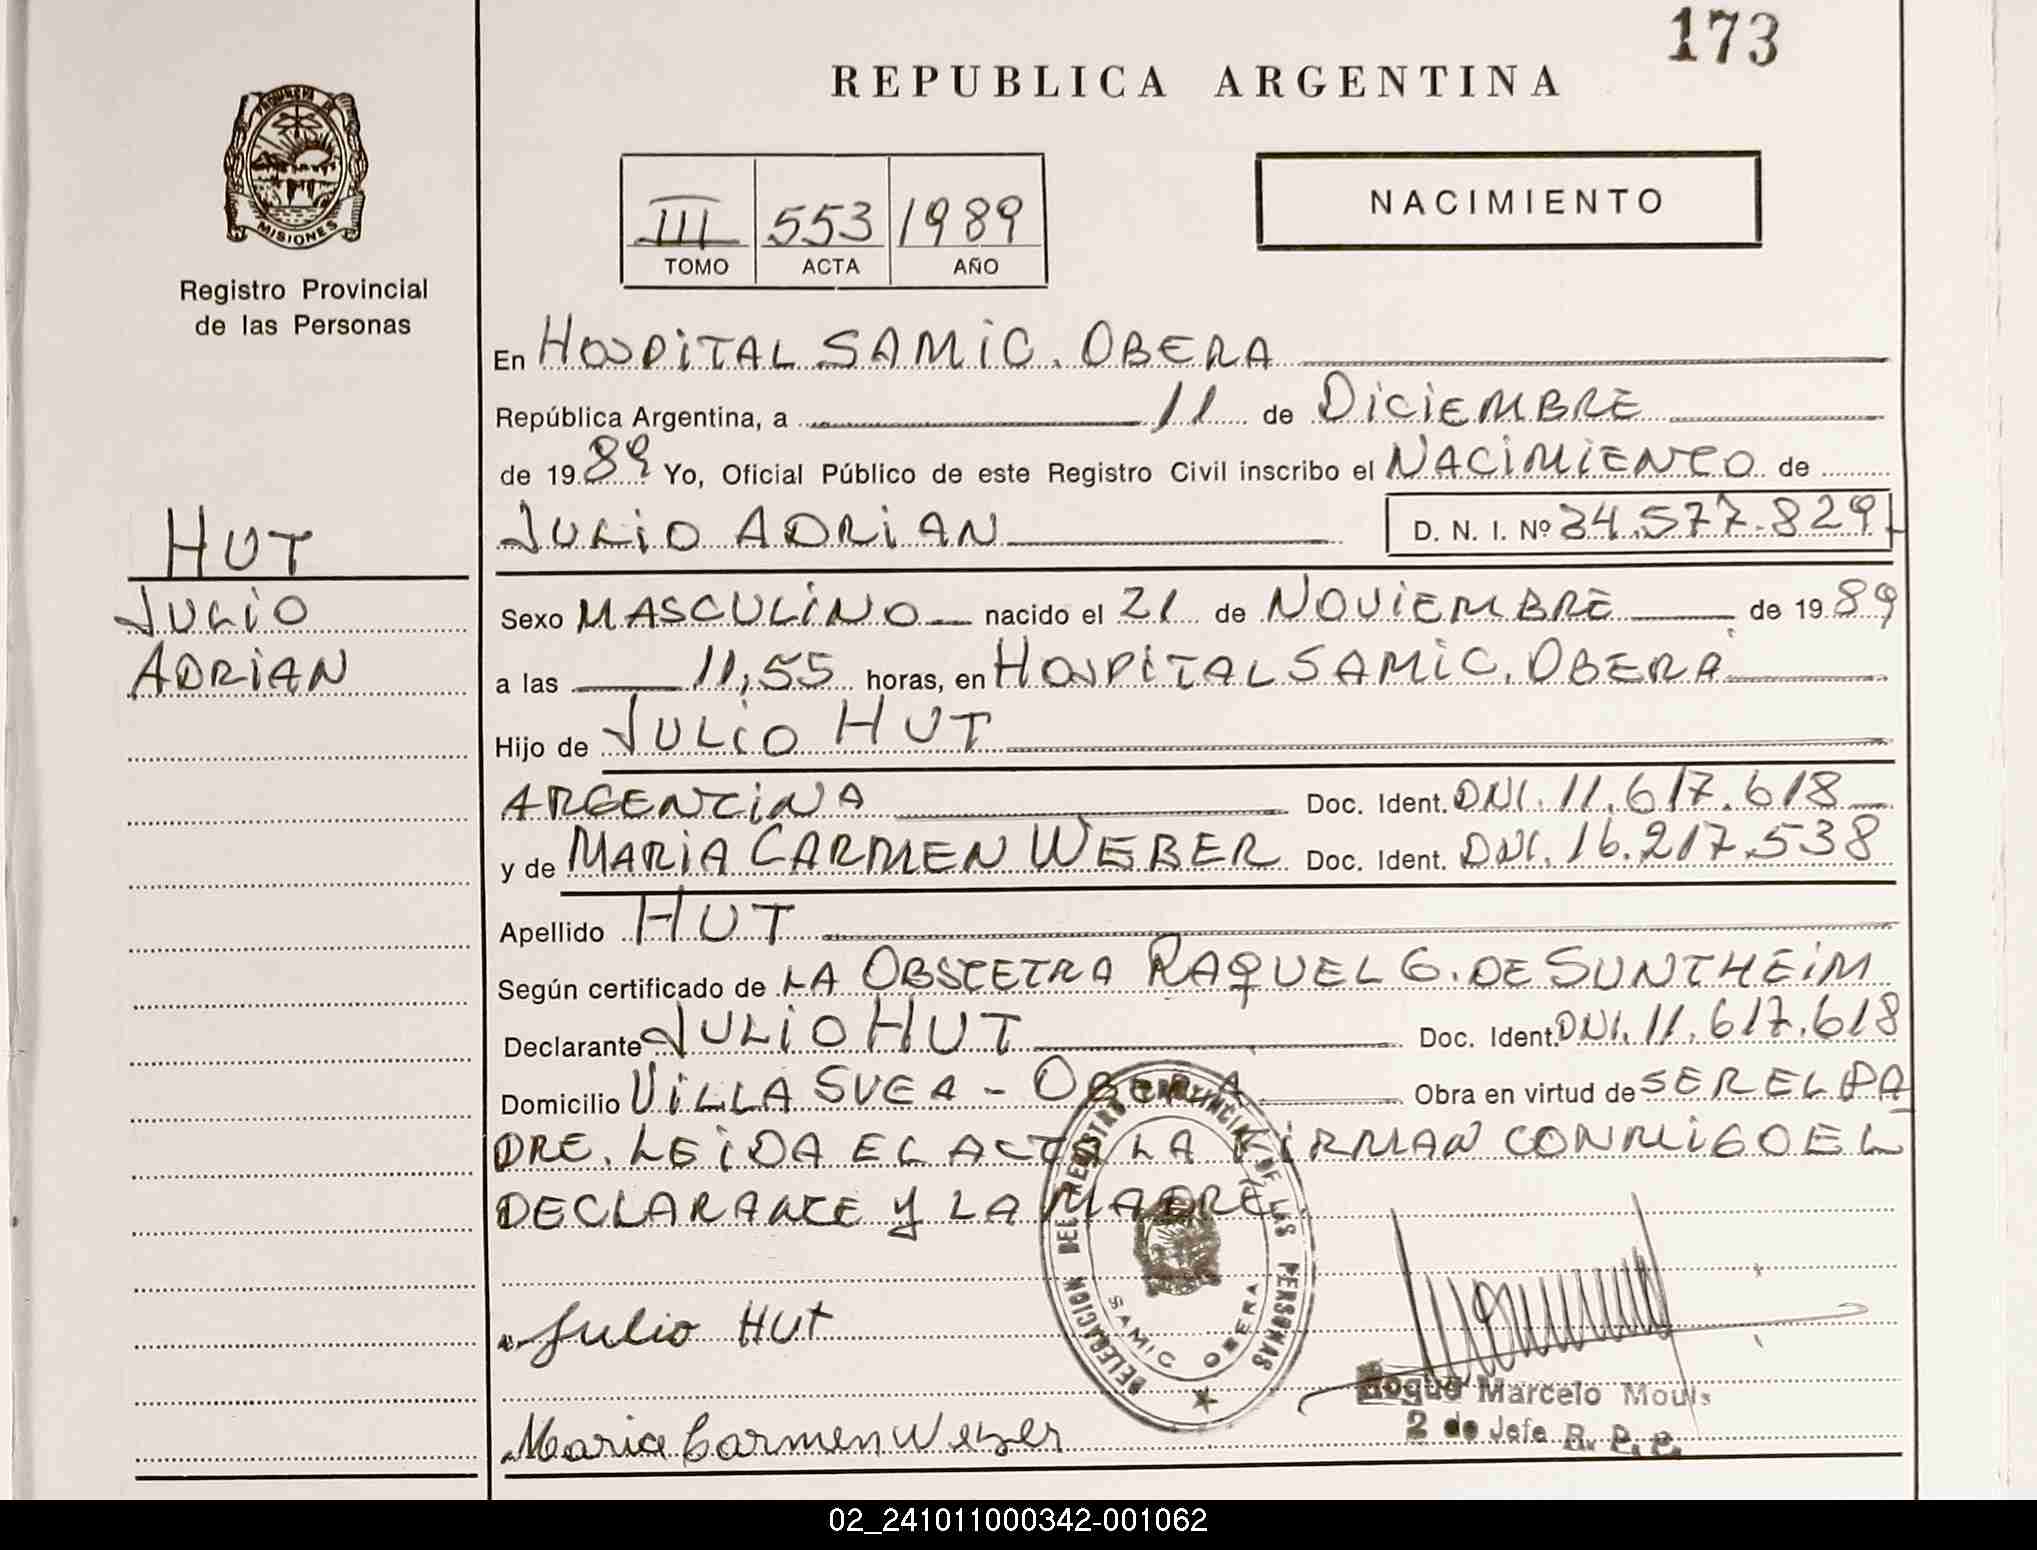 173
REPUBLICA ARGENTINA
PROVINCIA DE
MISIONES
Registro Provincial
de las Personas
III 553 1989
TOMO ACTA AÑO
NACIMIENTO
En HOSPITAL SAMIC. OBERA
República Argentina, a 11 de DICIEMBRE
de 1989 Yo, Oficial Público de este Registro Civil inscribo el NACIMIENTO de
JULIO ADRIAN D. N. I. Nº 34.577.829
HUT
JULIO
ADRIAN
Sexo MASCULINO nacido el 21 de NOVIEMBRE de 1989
a las 11,55 horas, en HOSPITAL SAMIC. OBERA
Hijo de JULIO HUT
ARGENTINA Doc. Ident. DNI. 11.617.618
y de MARIA CARMEN WEBER Doc. Ident. DNI. 16.217.538
Apellido HUT
Según certificado de LA OBSTETRA RAQUEL G. DE SUNTHEIM
Declarante JULIO HUT Doc. Ident. DNI. 11.617.618
Domicilio VILLA SVEA - OBERA Obra en virtud de SER EL PA
DRE. LEIDA EL ACTA LA FIRMAN CONMIGO EL
DECLARANTE Y LA MADRE.
DELEGACION DEL REGISTRO PROVINCIAL DE LAS PERSONAS
SAMIC OBERA
Julio Hut
Maria Carmen Weber
Roque Marcelo Mouls
2 do Jefe R. P. P.
02_241011000342-001062